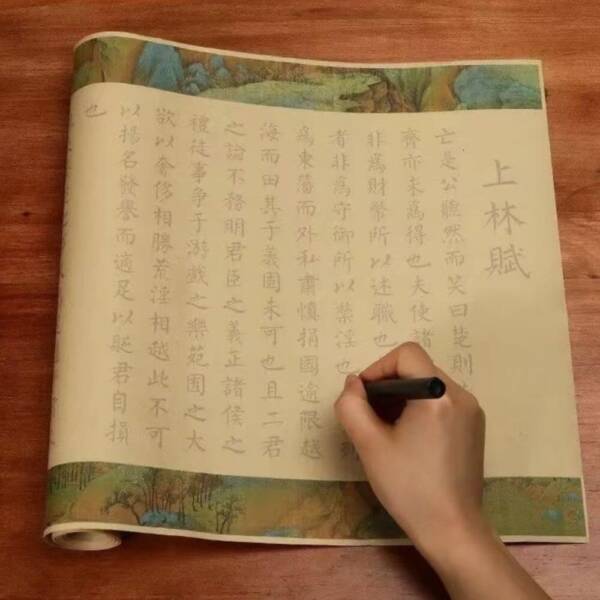 上林賦
亡是公聽然而笑曰楚則
齊亦未爲得也夫使諸
非爲財幣所以述職也
者非爲守御所以禁淫也
爲東藩而外私肅慎捐國逾限越
海而田其于義固未可也且二君
之論不務明君臣之義正諸侯之
禮徒事爭于游戲之樂苑囿之大
欲以奢侈相勝荒淫相越此不可
以揚名發譽而適足以貶君自損
也